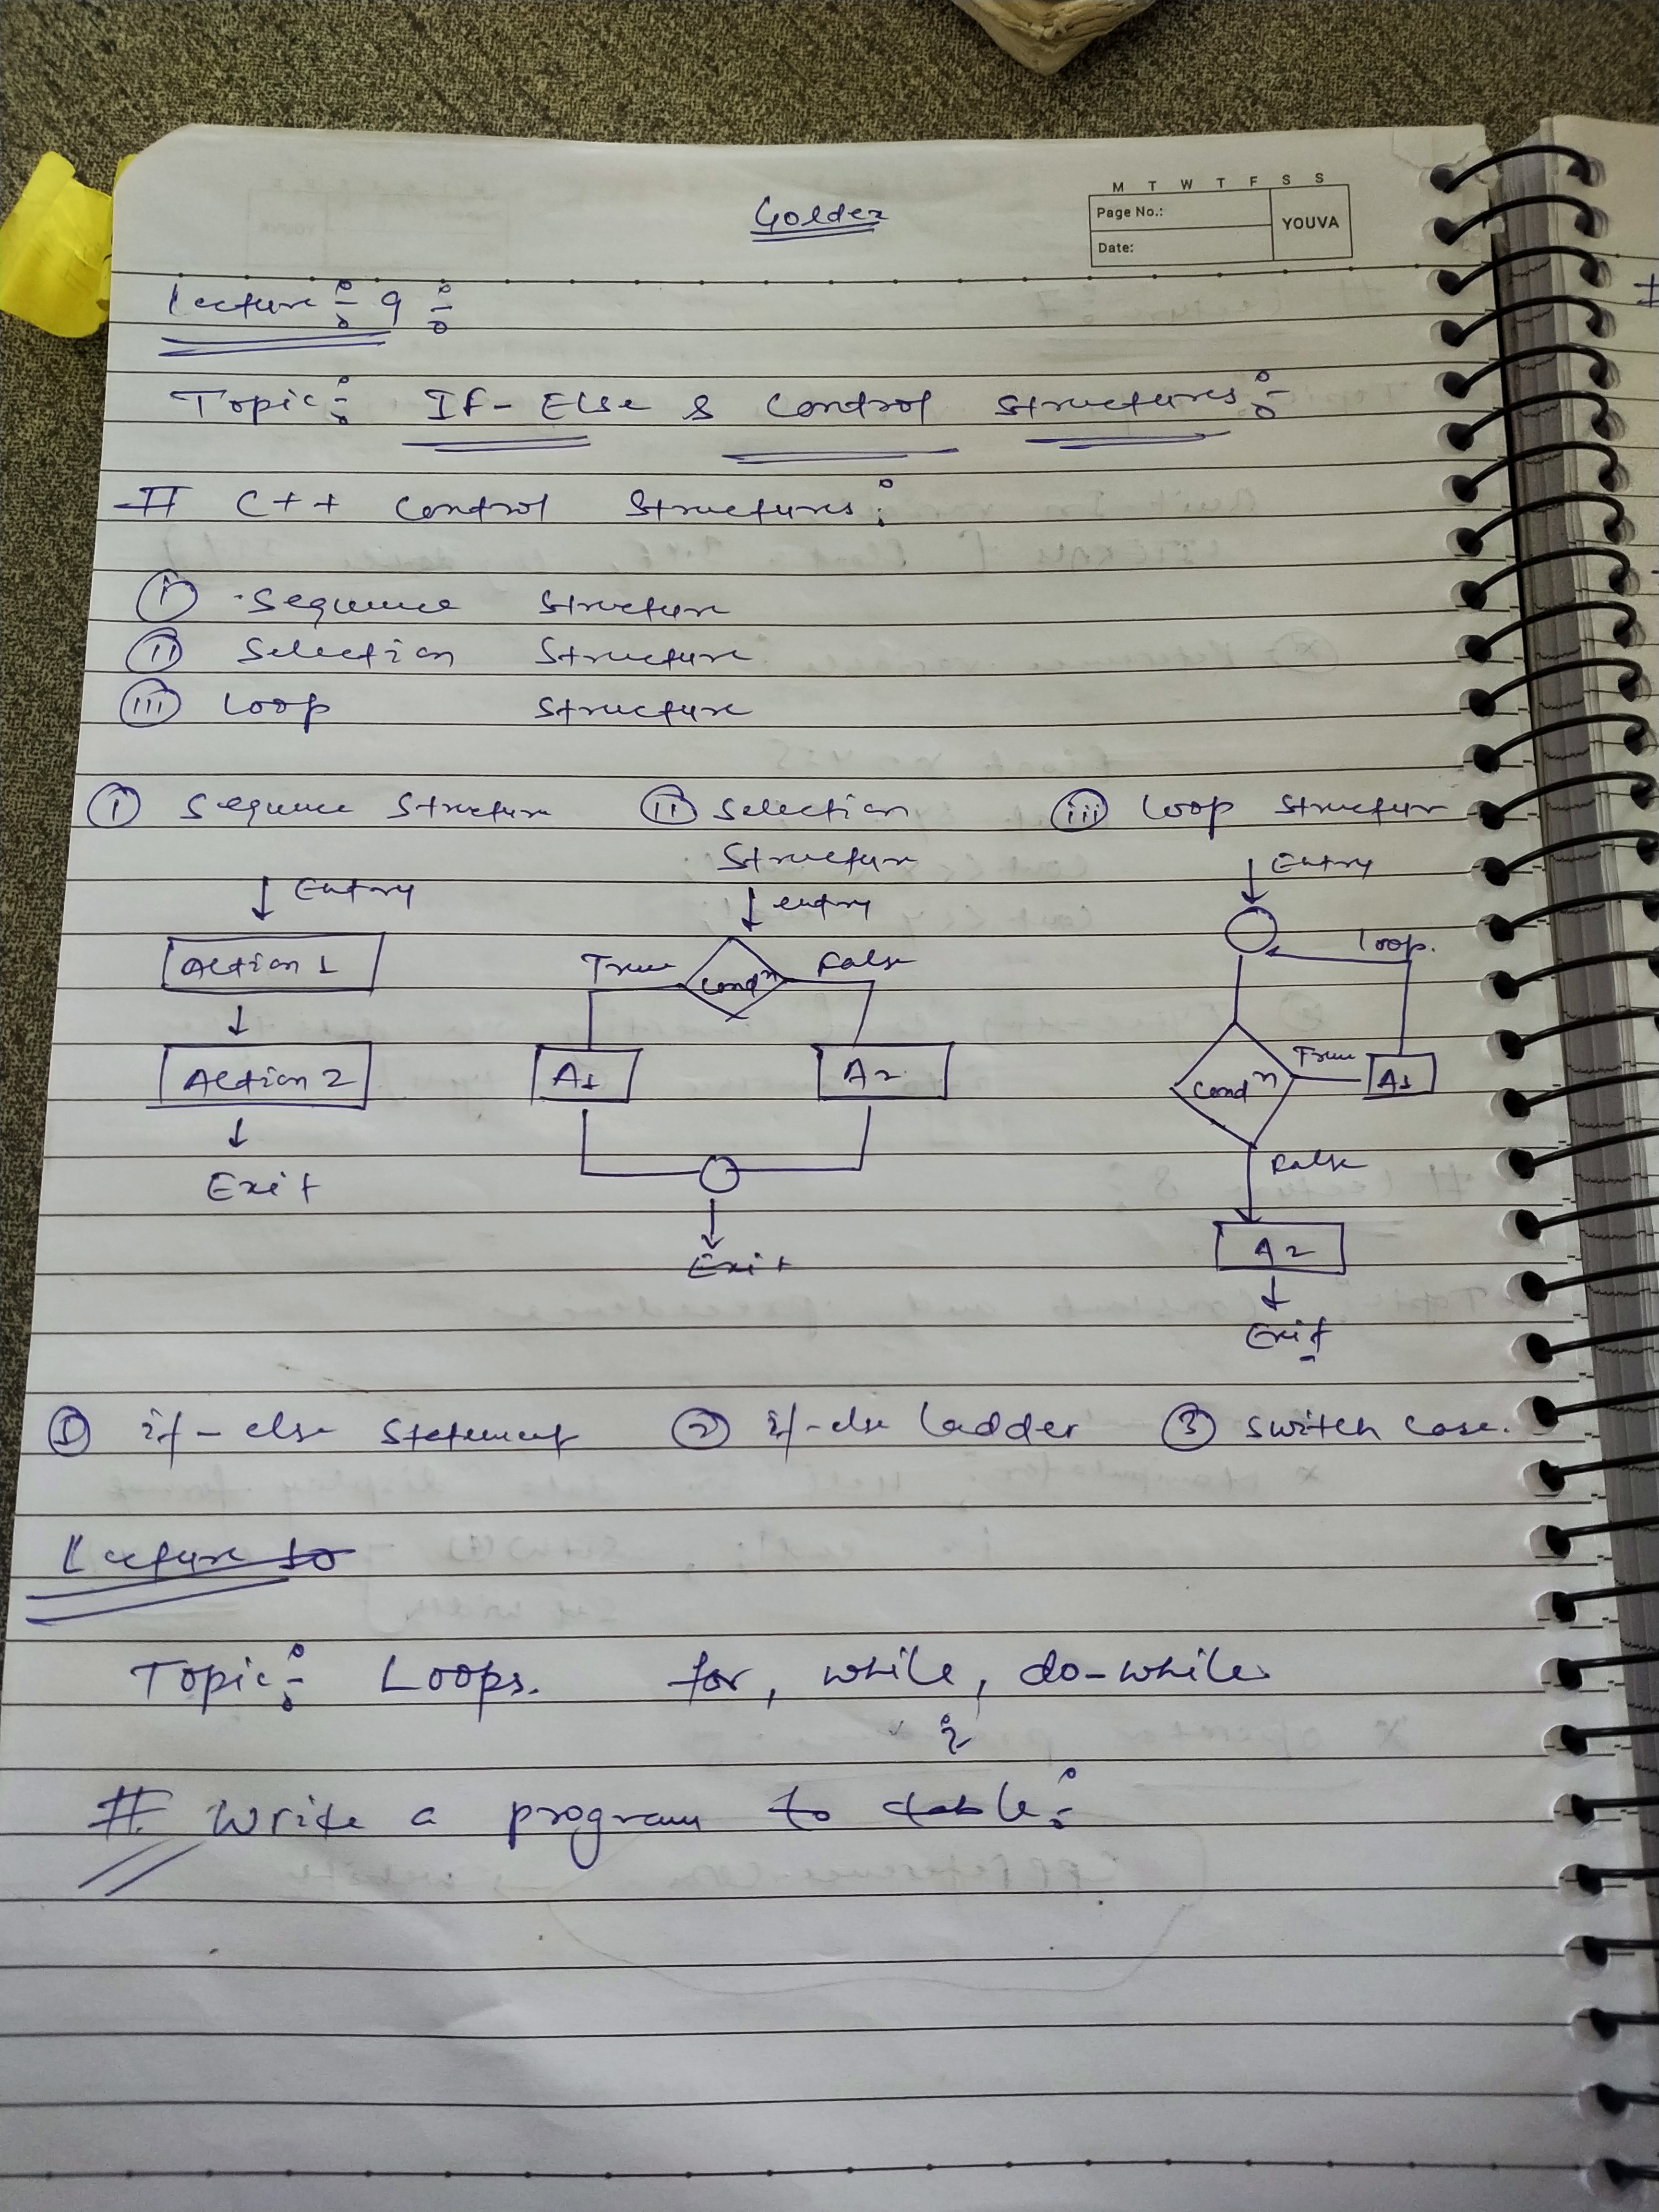 Golden
M T W T F S S
Page No.:
YOUVA
Date:
Lecture :- 9 :-
Topic :- If-Else & Control Structures :-
# C++ Control Structures :
(i) Sequence Structure
(ii) Selection Structure
(iii) Loop Structure
(i) Sequence Structure
Entry
Action 1
Action 2
Exit
(ii) Selection
Structure
entry
True Condⁿ False
A1 A2
Exit
(iii) Loop Structure
Entry
loop.
Condⁿ True A1
False
A2
Exit
① if-else statement ② if-else ladder ③ switch case.
Lecture 10
Topic :- Loops. for, while, do-while
# Write a program to table :-